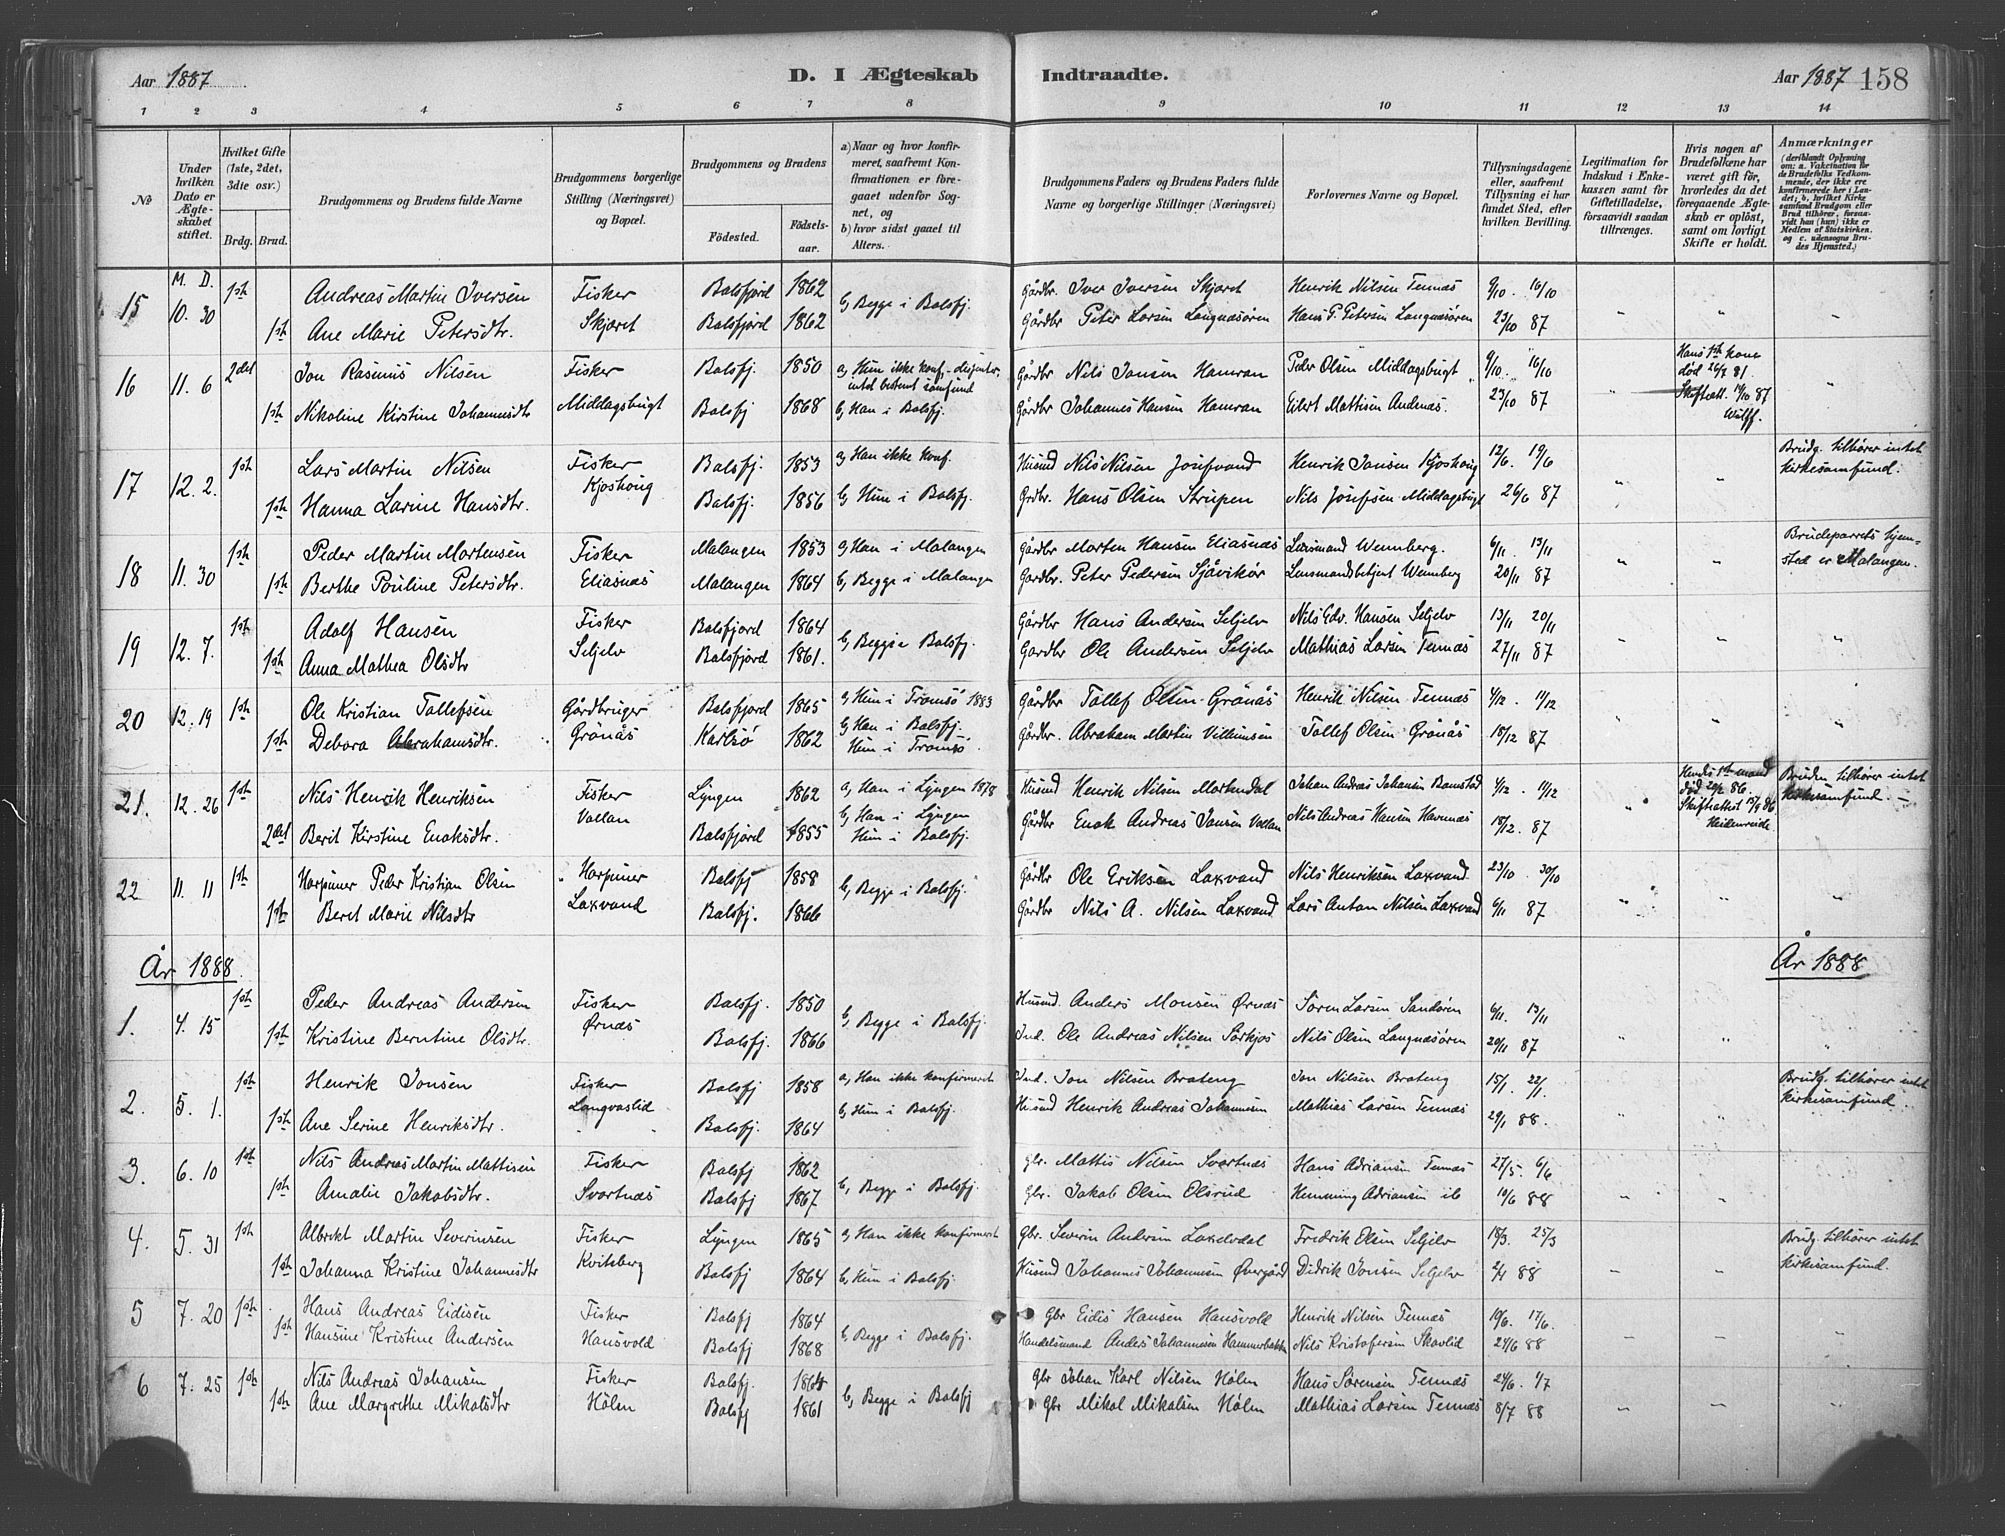 Aar 1887
D. I Ægteskab Indtraadte.
Aar 1887 158
1 2 3 4 5 6 7 8 9 10 11 12 13 14
No
Under hvilken Dato er Ægteskabet stiftet.
Hvilket Gifte (1ste, 2det, 3die osv.)
Brdg. Brud.
Brudgommens og Brudens fulde Navne
Brudgommens borgerlige Stilling (Næringsvei) og Bopæl.
Brudgommens og Brudens
Födested. Födselsaar.
a) Naar og hvor konfirmeret, saafremt Konfirmationen er foregaaet udenför Sognet, og
b) hvor sidst gaaet til Alters.
Brudgommens Faders og Brudens Faders fulde Navne og borgerlige Stillinger (Næringsvei)
Forlovernes Navne og Bopæl.
Tillysningsdagene eller, saafremt Tillysning ei har fundet Sted, efter hvilken Bevilling.
Legitimation for Indskud i Enkekassen samt for Giftetilladelse, forsaavidt saadan tiltrænges.
Hvis nogen af Brudefolkene har været gift för, hvorledes da det foregaaende Ægteskab er oplöst, samt om lovligt Skifte er holdt.
Anmærkninger
(deriblandt Oplysning om: a. Vakcination for de Brudefolks Vedkommende, der ikke ere konfirmerede her i Landet; b. hvilket Kirkesamfund Brudgom eller Brud tilhörer, forsaavidt han (hun) ikke er Medlem af Statskirken, og c. udensogns Brudes Hjemsted.)
M. D.
15 10. 30 1ste Andreas Martin Iversen Fisker Balsfjord 1862 b, Begge i Balsfj. Gårdbr. Iver Iversen Skjaret Henrik Nilsen Tennæs 9/10. 16/10
1ste Ane Marie Petersdtr. Skjaret Balsfjord 1862 Gårdbr Peter Larsen Langnæsören Hans P. Petersen Langnæsören 23/10 87 " " "
16 11. 6 2det Jon Rasmus Nilsen Fisker Balsfj. 1850 a, Hun ikke konf. - dissenter, intet bestemt samfund Gårdbr Nils Jonsen Hamran Peder Olsen Middagsbugt 9/10. 16/10 Hans 1ste kone död 26/2 81
1ste Nikoline Kirstine Johannesdtr Middagsbugt Balsfj. 1868 b, Han i Balsfj. Gårdbr Johannes Hansen Hamran Eilert Mattisen Andenæs. 23/10 87 " Skifteatt. 14/10 87 Wulff. "
17 12. 2. 1ste Lars Martin Nilsen Fisker Balsfj. 1853 a, Han ikke konf. Husmd Nils Nilsen Josefvand Henrik Jonsen Kjoshoug 12/6. 19/6 Brudg. tilhörer intet kirkesamfund.
1ste Hanna Larine Hansdtr. Kjoshoug Balsfj. 1856 b, Hun i Balsfj. Grdbr. Hans Olsen Strupen Nils Josefsen Middagsbugt 26/6 87 " "
18 11. 30 1ste Peder Martin Mortensen Fisker Malangen 1853 a, Han i Malangen Gårdbr Morten Hansen Eliasnæs Lensmand Wennberg. 6/11. 13/11 Brudeparrets hjemsted er Malangen.
1ste Berthe Pouline Petersdtr. Eliasnæs Malangen 1864 b, Begge i Malangen Gårdbr. Peter Pedersen Sjåvikör Lensmandsbetjent Wennberg 20/11 87 " "
19 12. 7. 1ste Adolf Hansen Fisker Balsfjord 1864 b, Begge i Balsfj. Gårdbr Hans Andersen Seljelv Nils Edv. Hansen Seljelv 13/11 20/11
1ste Anna Mathea Olsdtr Seljelv Balsfjord 1861. Gårdbr Ole Andersen Seljelv Mathias Larsen Tennæs 27/11 87 " " "
20 12. 19 1ste Ole Kristian Tollefsen Gårdbruger Balsfjord 1865 a, Hun i Tromsö 1883 Gårdbr Tollef Olsen Grönås Henrik Nilsen Tennæs 4/12. 11/12
1ste Debora Abrahamsdtr. Grönås Karlsö 1862 b, Han i Balsfj. Hun i Tromsö Gårdbr. Abraham Martin Villumsen Tollef Olsen Grönås 18/12 87 " " "
21. 12. 26 1ste Nils Henrik Henriksen Fisker Lyngen 1862 a, Han i Lyngen 1878 Husmd Henrik Nilsen Mortendal Johan Andreas Johansen Bomstad 4/12. 11/12 Hendes 1ste mand död 20/2 86. Bruden tilhörer intet kirkesamfund. -
2det Berit Kirstine Enoksdtr. Vollan Balsfjord 1855 b, Han i Lyngen Hun i Balsfj. Gårdbr Enok Andreas Jonsen Vollan Nils Andreas Hansen Havnnæs 18/12. 87 " Skifteattest 13/9 86 Heidenreich.
22 11. 11 1ste Harpuner Peder Kristian Olsen Harpuner Balsfj 1858 b, Begge i Balsfj. Gårdbr Ole Eriksen Laxvand Nils Henriksen Laxvand 23/10. 30/10
1ste Berit Marie Nilsdtr Laxvand Balsfj. 1866 Gårdbr Nils A. Nilsen Laxvand Lars Anton Nilsen Laxvand 6/11 87 " " "
År 1888. År 1888
1. 4. 15 1ste Peder Andreas Andersen Fisker Balsfj. 1850 b, Begge i Balsfj. Husmd. Anders Monsen Ørnæs Sören Larsen Sandören 6/11. 13/11
1ste Kristine Berntine Olsdtr. Ørnæs Balsfj. 1866 Ind. Ole Andreas Nilsen Sörkjos Nils Olsen Langnæsören 20/11 87 " " "
2. 5. 1. 1ste Henrik Jonsen Fisker Balsfj 1858 a, Han ikke konfirmeret Ind. Jon Nilsen Brateng Jon Nilsen Brateng 15/1. 22/1. Brudg. tilhörer intet kirkesamfund.
1ste Ane Serine Henriksdtr. Langvaslid Balsfj. 1864 b, Hun i Balsfj. Husmd Henrik Andreas Johannesen Mathias Larsen Tennæs 29/1 88. " "
3. 6. 10 1ste Nils Andreas Martin Mattisen Fisker Balsfj 1862 b, Begge i Balsfj. Gbr. Mattis Nilsen Svartnæs Hans Adriansen Tennæs 27/5 6/6
1ste Amalie Jakobsdtr. Svartnæs Balsfj 1867 Gbr. Jakob Olsen Olsrud Henning Adriansen ib 10/6 88 " " "
4. 5. 31 1ste Albrekt Martin Severinsen Fisker Lyngen 1865 a, Han ikke konfirmeret Gbr. Severin Andersen Lakselvdal Fredrik Olsen Seljelv 18/3. 25/3 Brudg. tilhörer intet kirkesamfund.
1ste Johanna Kristine Johannesdtr Kvitberg Balsfj 1864 b, Hun i Balsfj. Husmd Johannes Johannesen Øvergård Didrik Jonsen Seljelv 2/4 88 " "
5 7. 20 1ste Hans Andreas Eidisen Fisker Balsfj 1864 b, Begge i Balsfj. Gbr Eidis Hansen Hansvold Henrik Nilsen Tennæs 10/6. 17/6.
1ste Hansine Kristine Andersen Hansvold Balsfj 1868 Handelsmand Anders Johannesen Hammerbakken Nils Kristofersen Skavlid 24/6 88 " " "
6 7. 25 1ste Nils Andreas Johansen Fisker Balsfj. 1864 b, Begge i Balsfj Gbr Johan Karl Nilsen Hölm Hans Sörensen Tennæs 24/6. 1/7
1ste Ane Margrethe Mikalsdtr Hölm Balsfj 1861 Gbr Mikal Mikalsen Hölm Mathias Larsen Tennæs 8/7 88 " " "